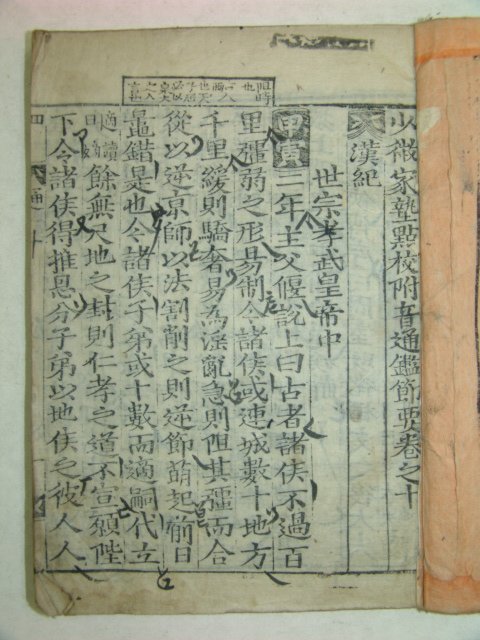 少微家塾點校附音通鑑節要卷之十
漢紀
世宗孝武皇帝中
甲寅二年主父偃說上曰古者諸侯不過百
里彊弱之形易制今諸侯或連城數十地方
千里緩則驕奢易為淫亂急則阻其彊而合
從以逆京師以法割削之則逆節萌起前日
鼂錯是也今諸侯子弟或十數而適嗣代立
適讀曰嫡餘無尺地之封則仁孝之道不宣願陛
下令諸侯得推恩分子弟以地侯之彼人人
通十